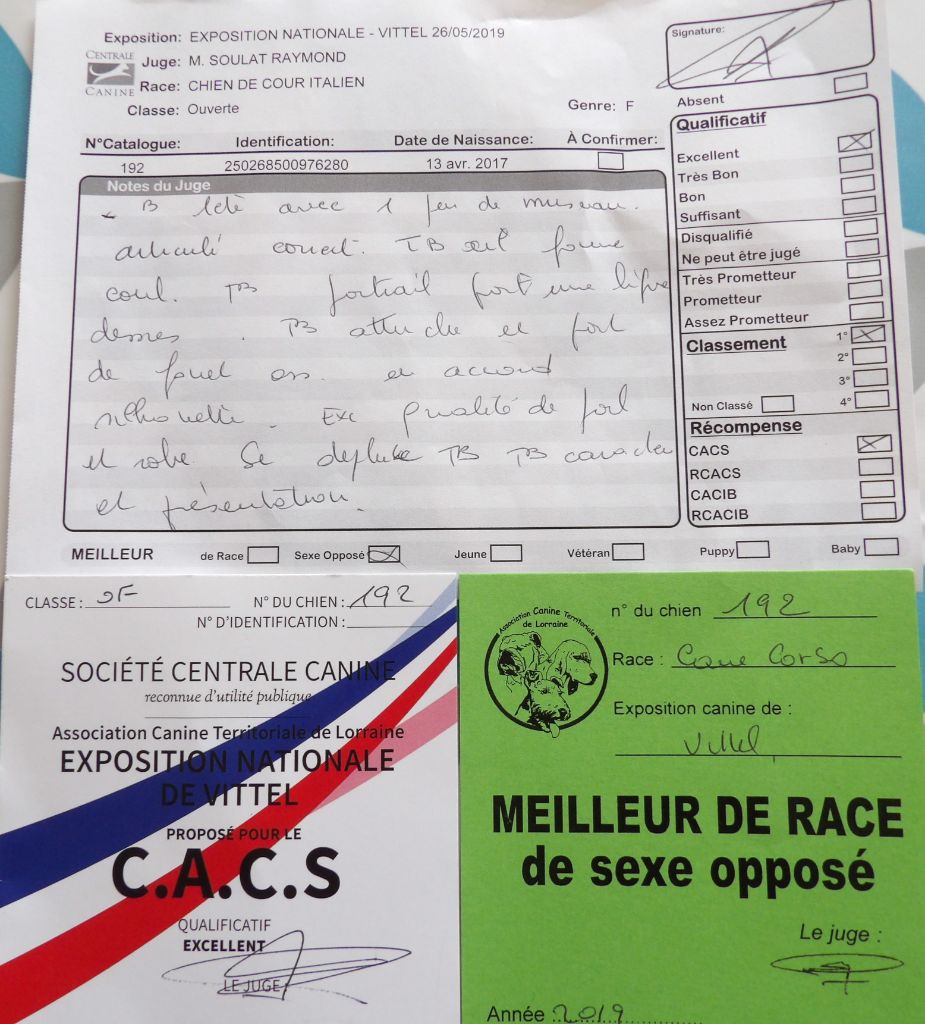 Exposition: EXPOSITION NATIONALE - VITTEL 26/05/2019
CENTRALE CANINE
Juge: M. SOULAT RAYMOND
Race: CHIEN DE COUR ITALIEN
Classe: Ouverte
Genre: F
Signature:
N°Catalogue: Identification: Date de Naissance: À Confirmer:
192 250268500976280 13 avr. 2017
Notes du Juge
B tête avec 1 peu de museau.
articulé correct. TB œil forme
coul. TB poitrail fort une ligne
dessus. TB attache et port
de fouet os. en accord
silhouette. Exc qualité de poil
et robe Se déplace TB TB caractère
et présentation.
Absent
Qualificatif
Excellent
Très Bon
Bon
Suffisant
Disqualifié
Ne peut être jugé
Très Prometteur
Prometteur
Assez Prometteur
Classement
1°
2°
3°
Non Classé 4°
Récompense
CACS
RCACS
CACIB
RCACIB
MEILLEUR de Race Sexe Opposé Jeune Vétéran Puppy Baby
CLASSE : OF N° DU CHIEN : 192
N° D'IDENTIFICATION :
SOCIÉTÉ CENTRALE CANINE
reconnue d'utilité publique
Association Canine Territoriale de Lorraine
EXPOSITION NATIONALE
DE VITTEL
PROPOSÉ POUR LE
C.A.C.S
QUALIFICATIF
EXCELLENT
LE JUGE
Association Canine Territoriale
de Lorraine
n° du chien 192
Race : Cane Corso
Exposition canine de :
Vittel
MEILLEUR DE RACE
de sexe opposé
Le juge :
Année : 2019